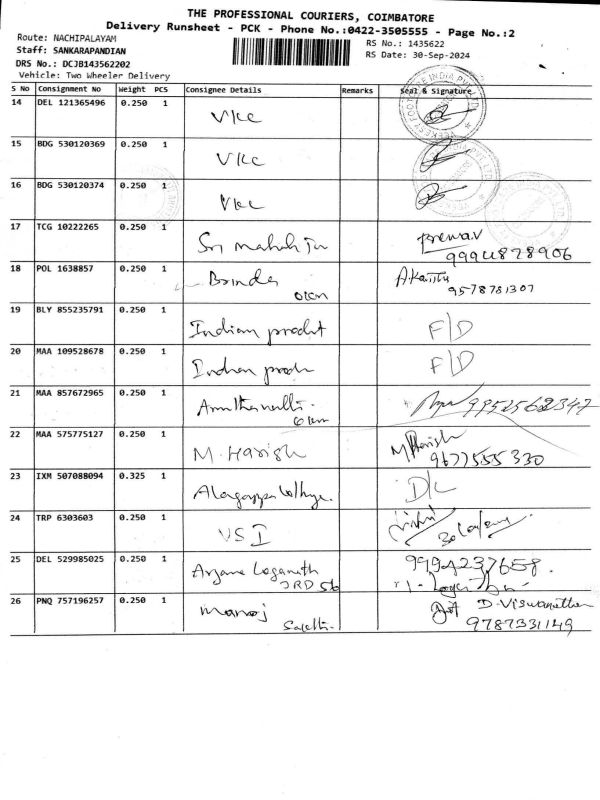 THE PROFESSIONAL COURIERS, COIMBATORE
Delivery Runsheet - PCK - Phone No.:0422-3505555 - Page No.:2
Route: NACHIPALAYAM
RS No.: 1435622
Staff: SANKARAPANDIAN
RS Date: 30-Sep-2024
DRS No.: DCJB143562202
Vehicle: Two Wheeler Delivery
S No Consignment No Weight PCS Consignee Details Remarks Seal & Signature
14 DEL 121365496 0.250 1 VKC
15 BDG 530120369 0.250 1 VKC
16 BDG 530120374 0.250 1 VKC
17 TCG 10222265 0.250 1 Sri
18 POL 1638857 0.250 1 Brinda
9578781307
19 BLY 855235791 0.250 1 Indian product F/D
20 MAA 109528678 0.250 1 Indian F/D
21 MAA 857672965 0.250 1 9952562347
22 MAA 575775127 0.250 1 M. Harish M Harish
9677555330
23 IXM 507088094 0.325 1 D/L
24 TRP 6303603 0.250 1 VSI
25 DEL 529985025 0.250 1 Loganath 9994237658.
26 PNQ 757196257 0.250 1 Manoj D. Viswanathan
9787331149